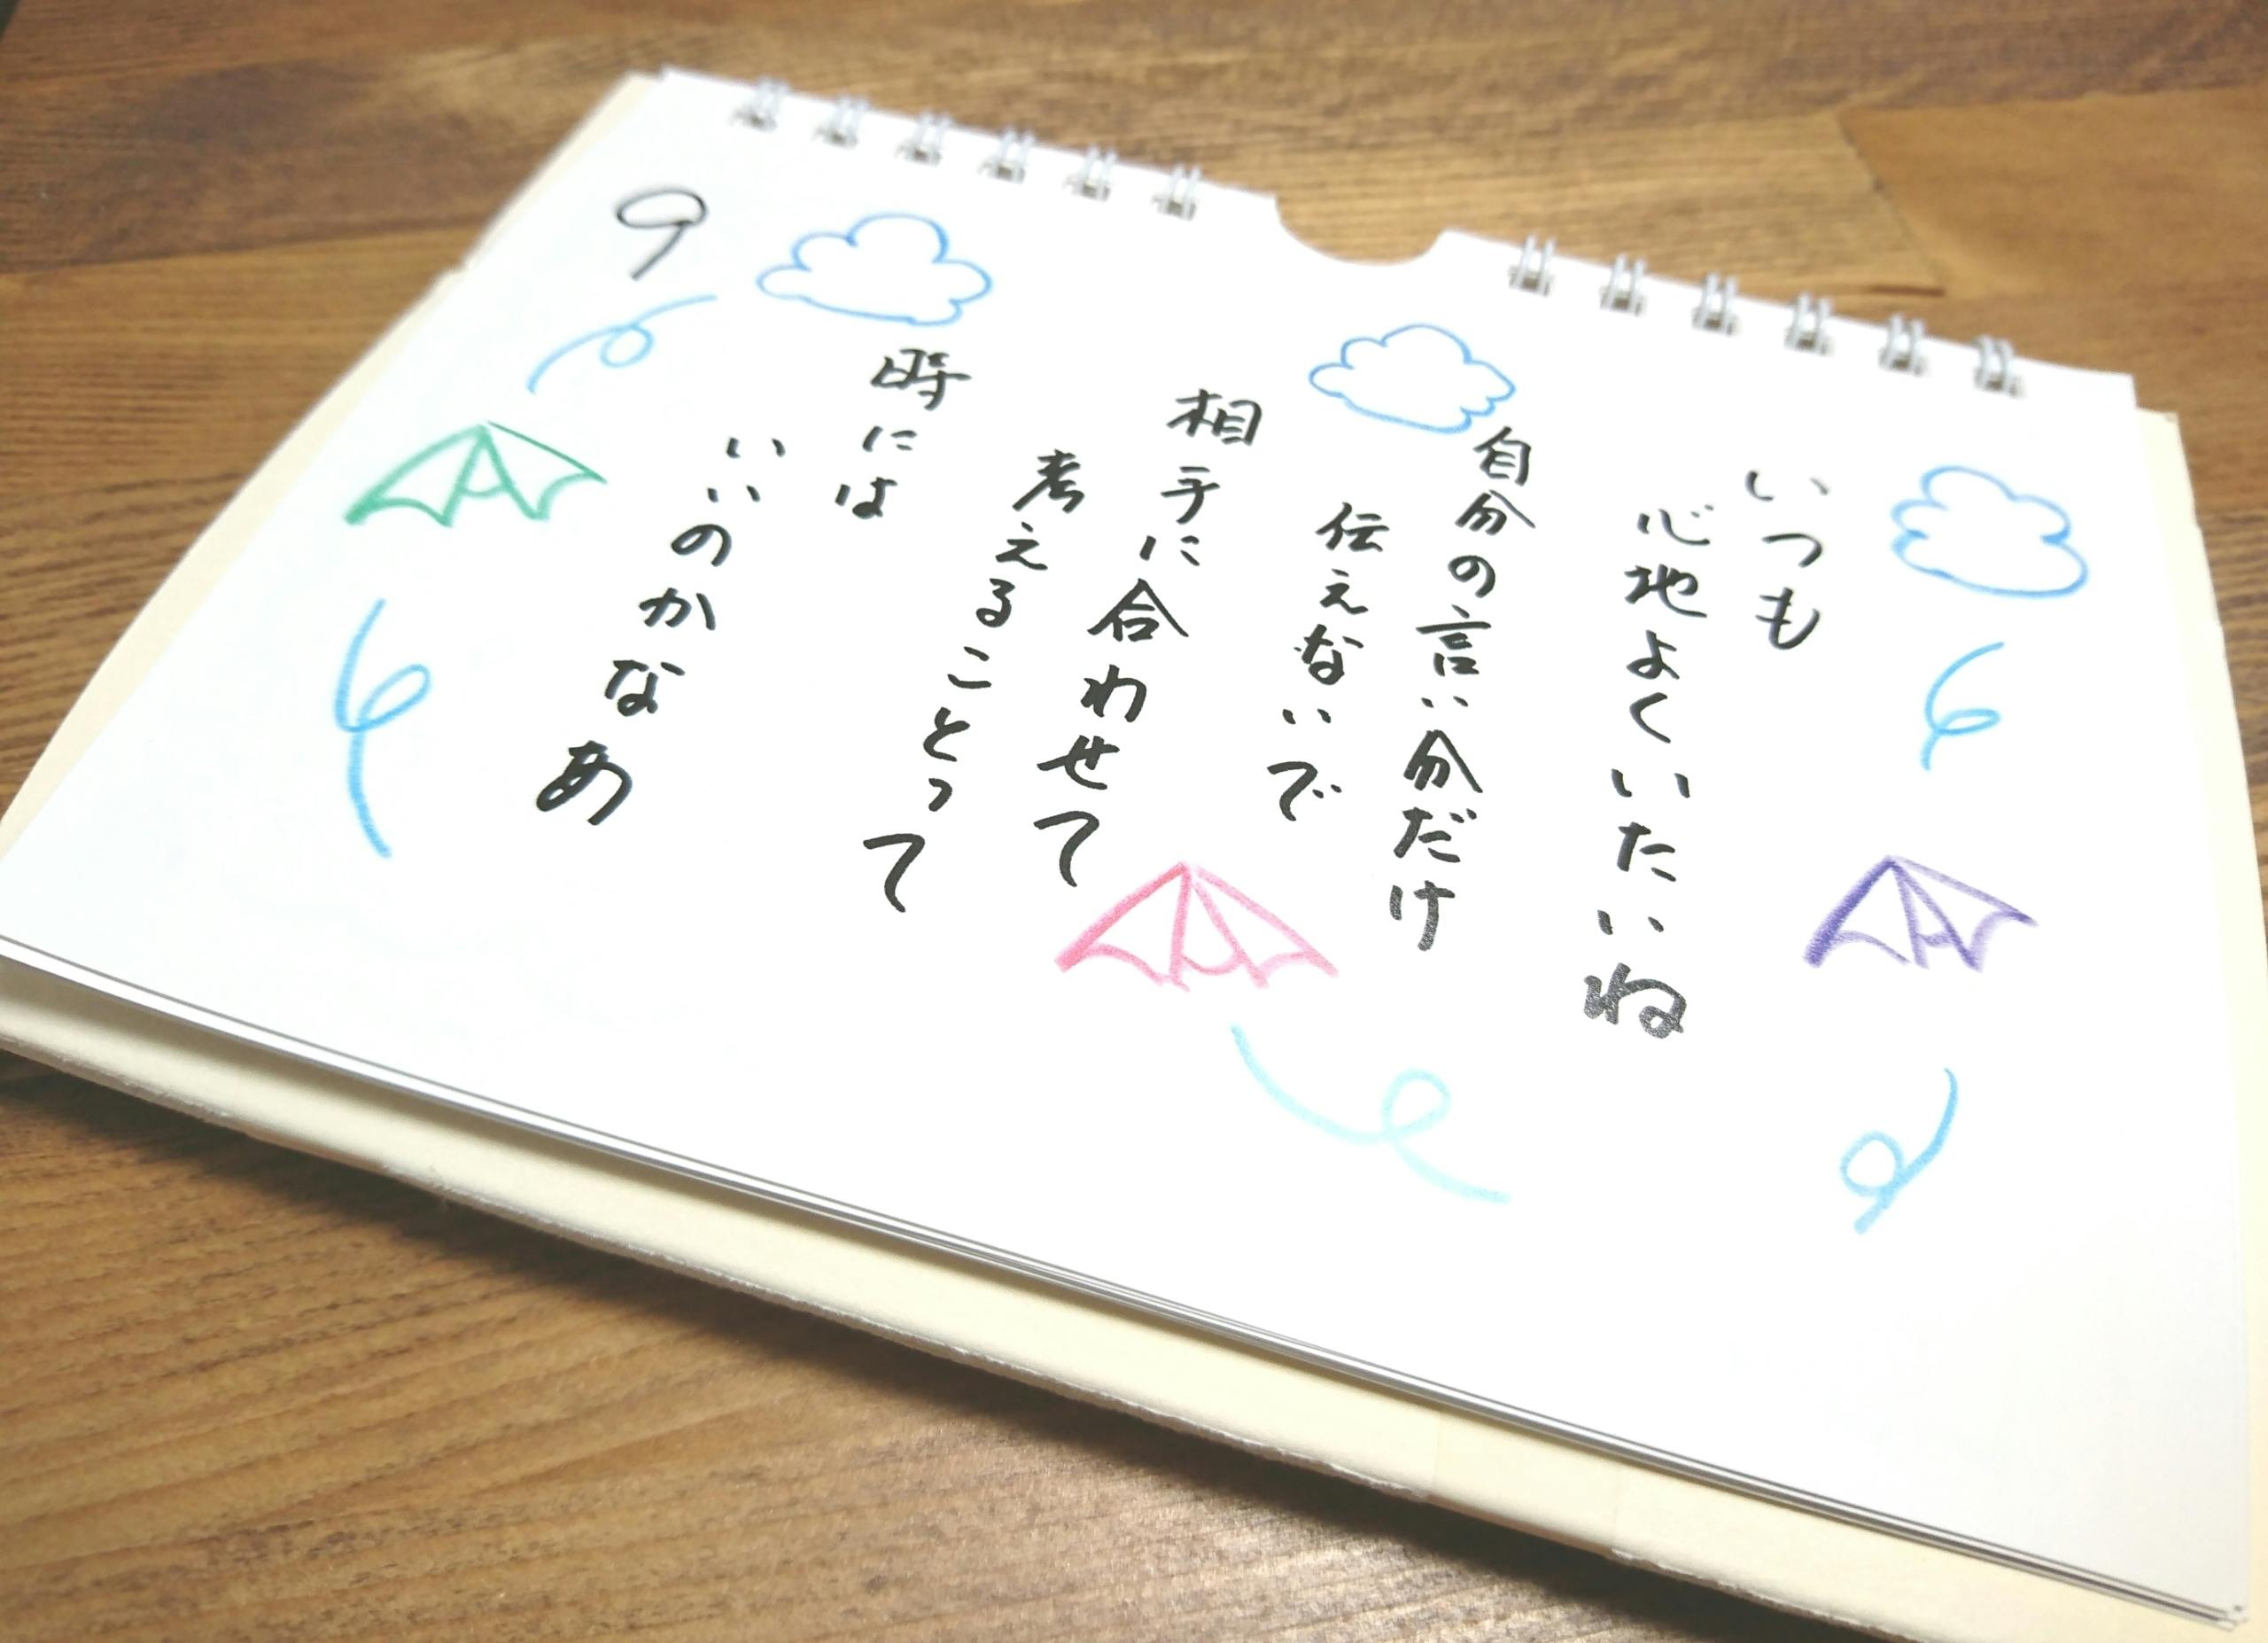 9
いつも
心地よくいたいね
自分の言い分だけ
伝えないで
相手に合わせて
考えることって
時には
いいのかなあ